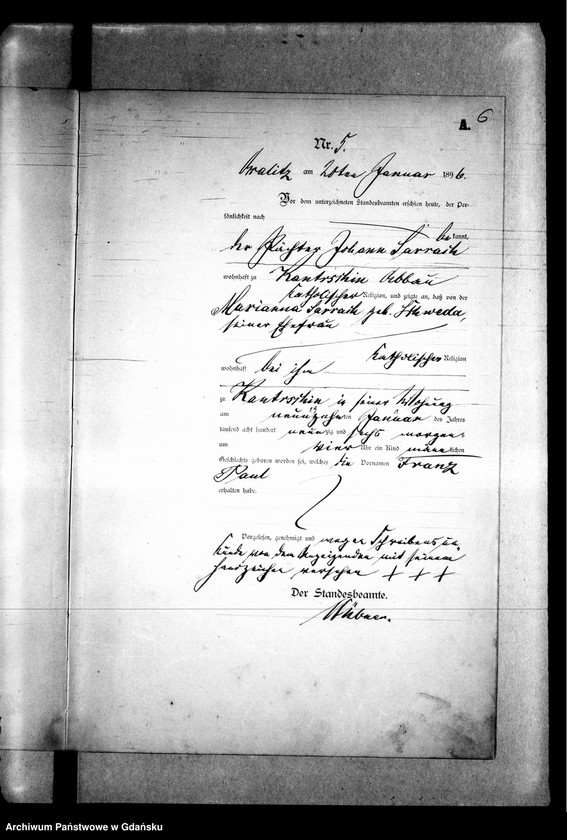 A. 6
Nr. 5.
am 20ten Januar 1896.
Vor dem unterzeichneten Standesbeamten erschien heute, der Per-
sönlichkeit nach
bekannt,
der Pächter Johann
wohnhaft zu Abbau
Katholischer Religion, und zeigte an, daß von der
Marianna geb.
seiner Ehefrau
Katholischer Religion
wohnhaft bei ihm
zu in seiner Wohnung
am neunzehnten Januar des Jahres
tausend acht hundert neunzig und sechs morgens
um vier Uhr ein Kind männlichen
Geschlechts geboren worden sei, welches die Vornamen Franz
Paul
erhalten habe.
Vorgelesen, genehmigt und wegen Schreibensun-
kunde von dem Anzeigenden mit seinem
Handzeichen versehen + + +
Der Standesbeamte.
Hübner.
Archiwum Państwowe w Gdańsku